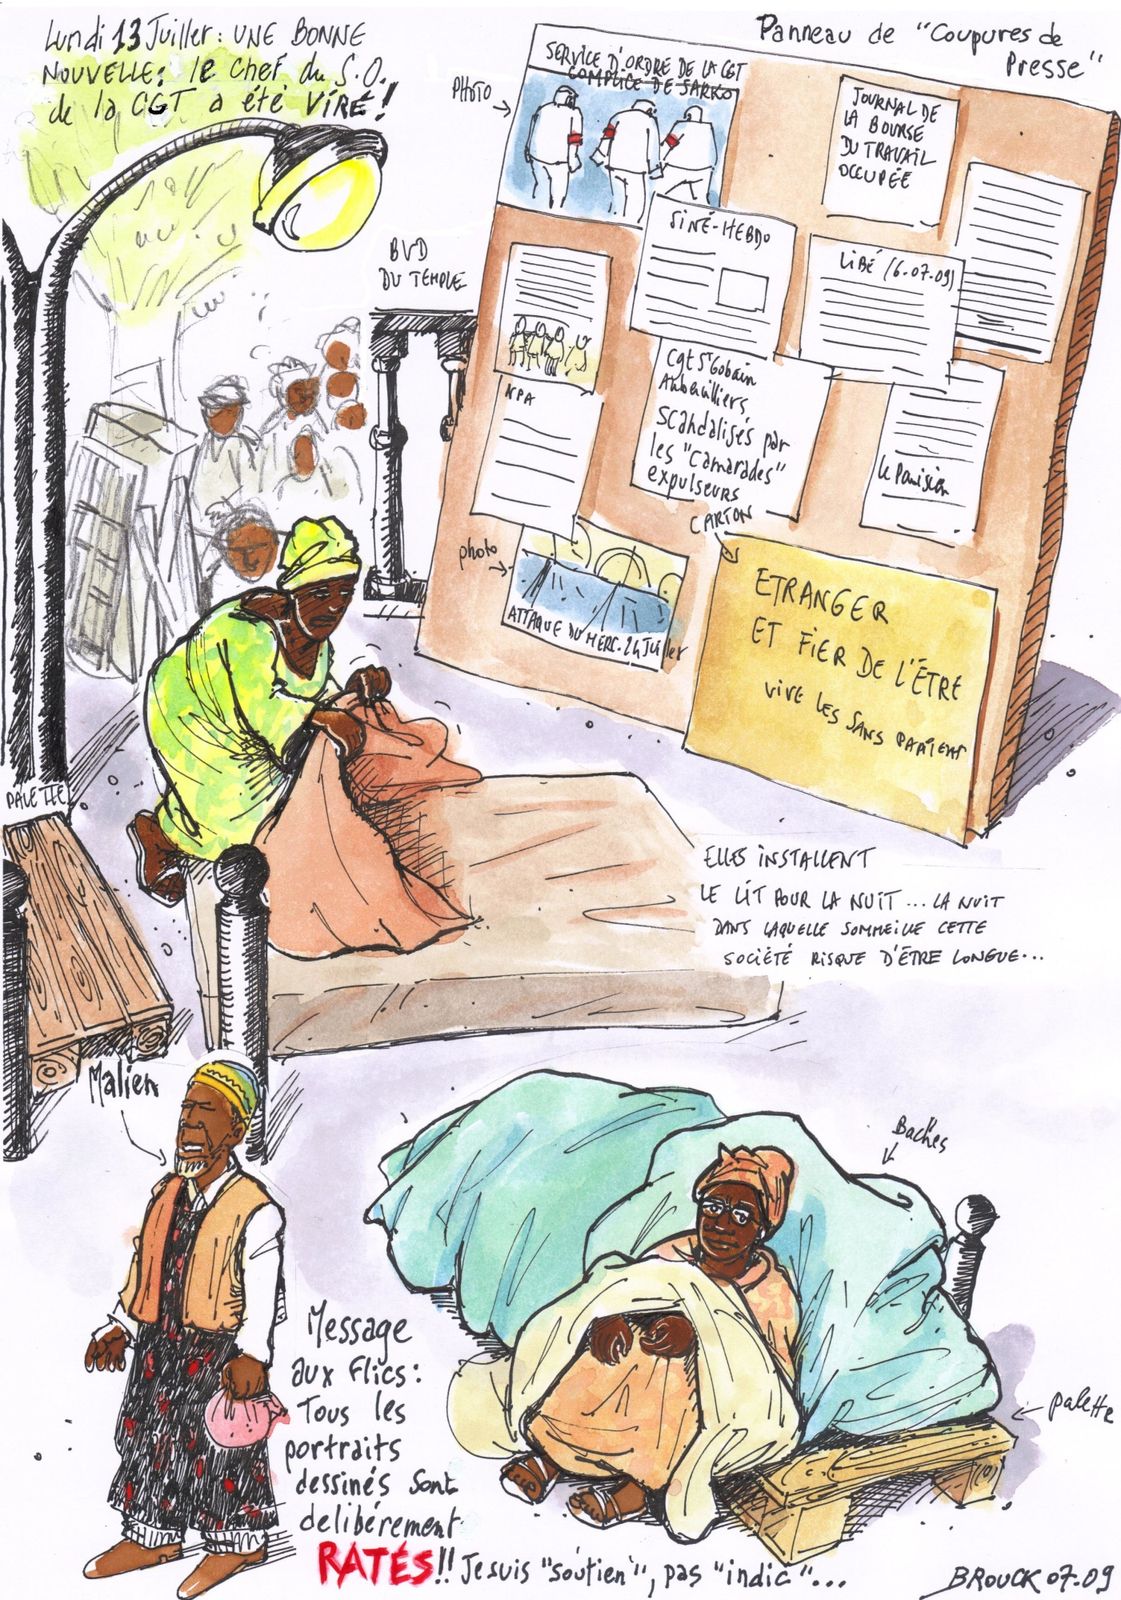 Lundi 13 Juillet : UNE BONNE
NOUVELLE : le chef du S.O.
de la CGT a été VIRÉ !
Panneau de "Coupures de
Presse"
PHOTO
SERVICE D'ORDRE DE LA CGT
COMPLICE DE SARKO
JOURNAL DE
LA BOURSE
DU TRAVAIL
OCCUPÉE
BVD
DU TEMPLE
SINÉ-HEBDO
LIBÉ (6.07.09)
NPA
Cgt St Gobain
Aubervilliers,
scandalisés par
les "camarades"
expulseurs
le Parisien
CARTON
photo
ATTAQUE DU MERC. 24 Juillet
ETRANGER
ET FIER DE L'ÊTRE
VIVE LES SANS PAPIERS
PALETTE
ELLES INSTALLENT
LE LIT POUR LA NUIT... LA NUIT
DANS LAQUELLE SOMMEILLE CETTE
SOCIÉTÉ RISQUE D'ÊTRE LONGUE...
Malien
Baches
palette
Message
aux Flics :
Tous les
portraits
dessinés sont
delibérement
RATÉS!! Je suis "soutien", pas "indic"...
BROUCK 07.09